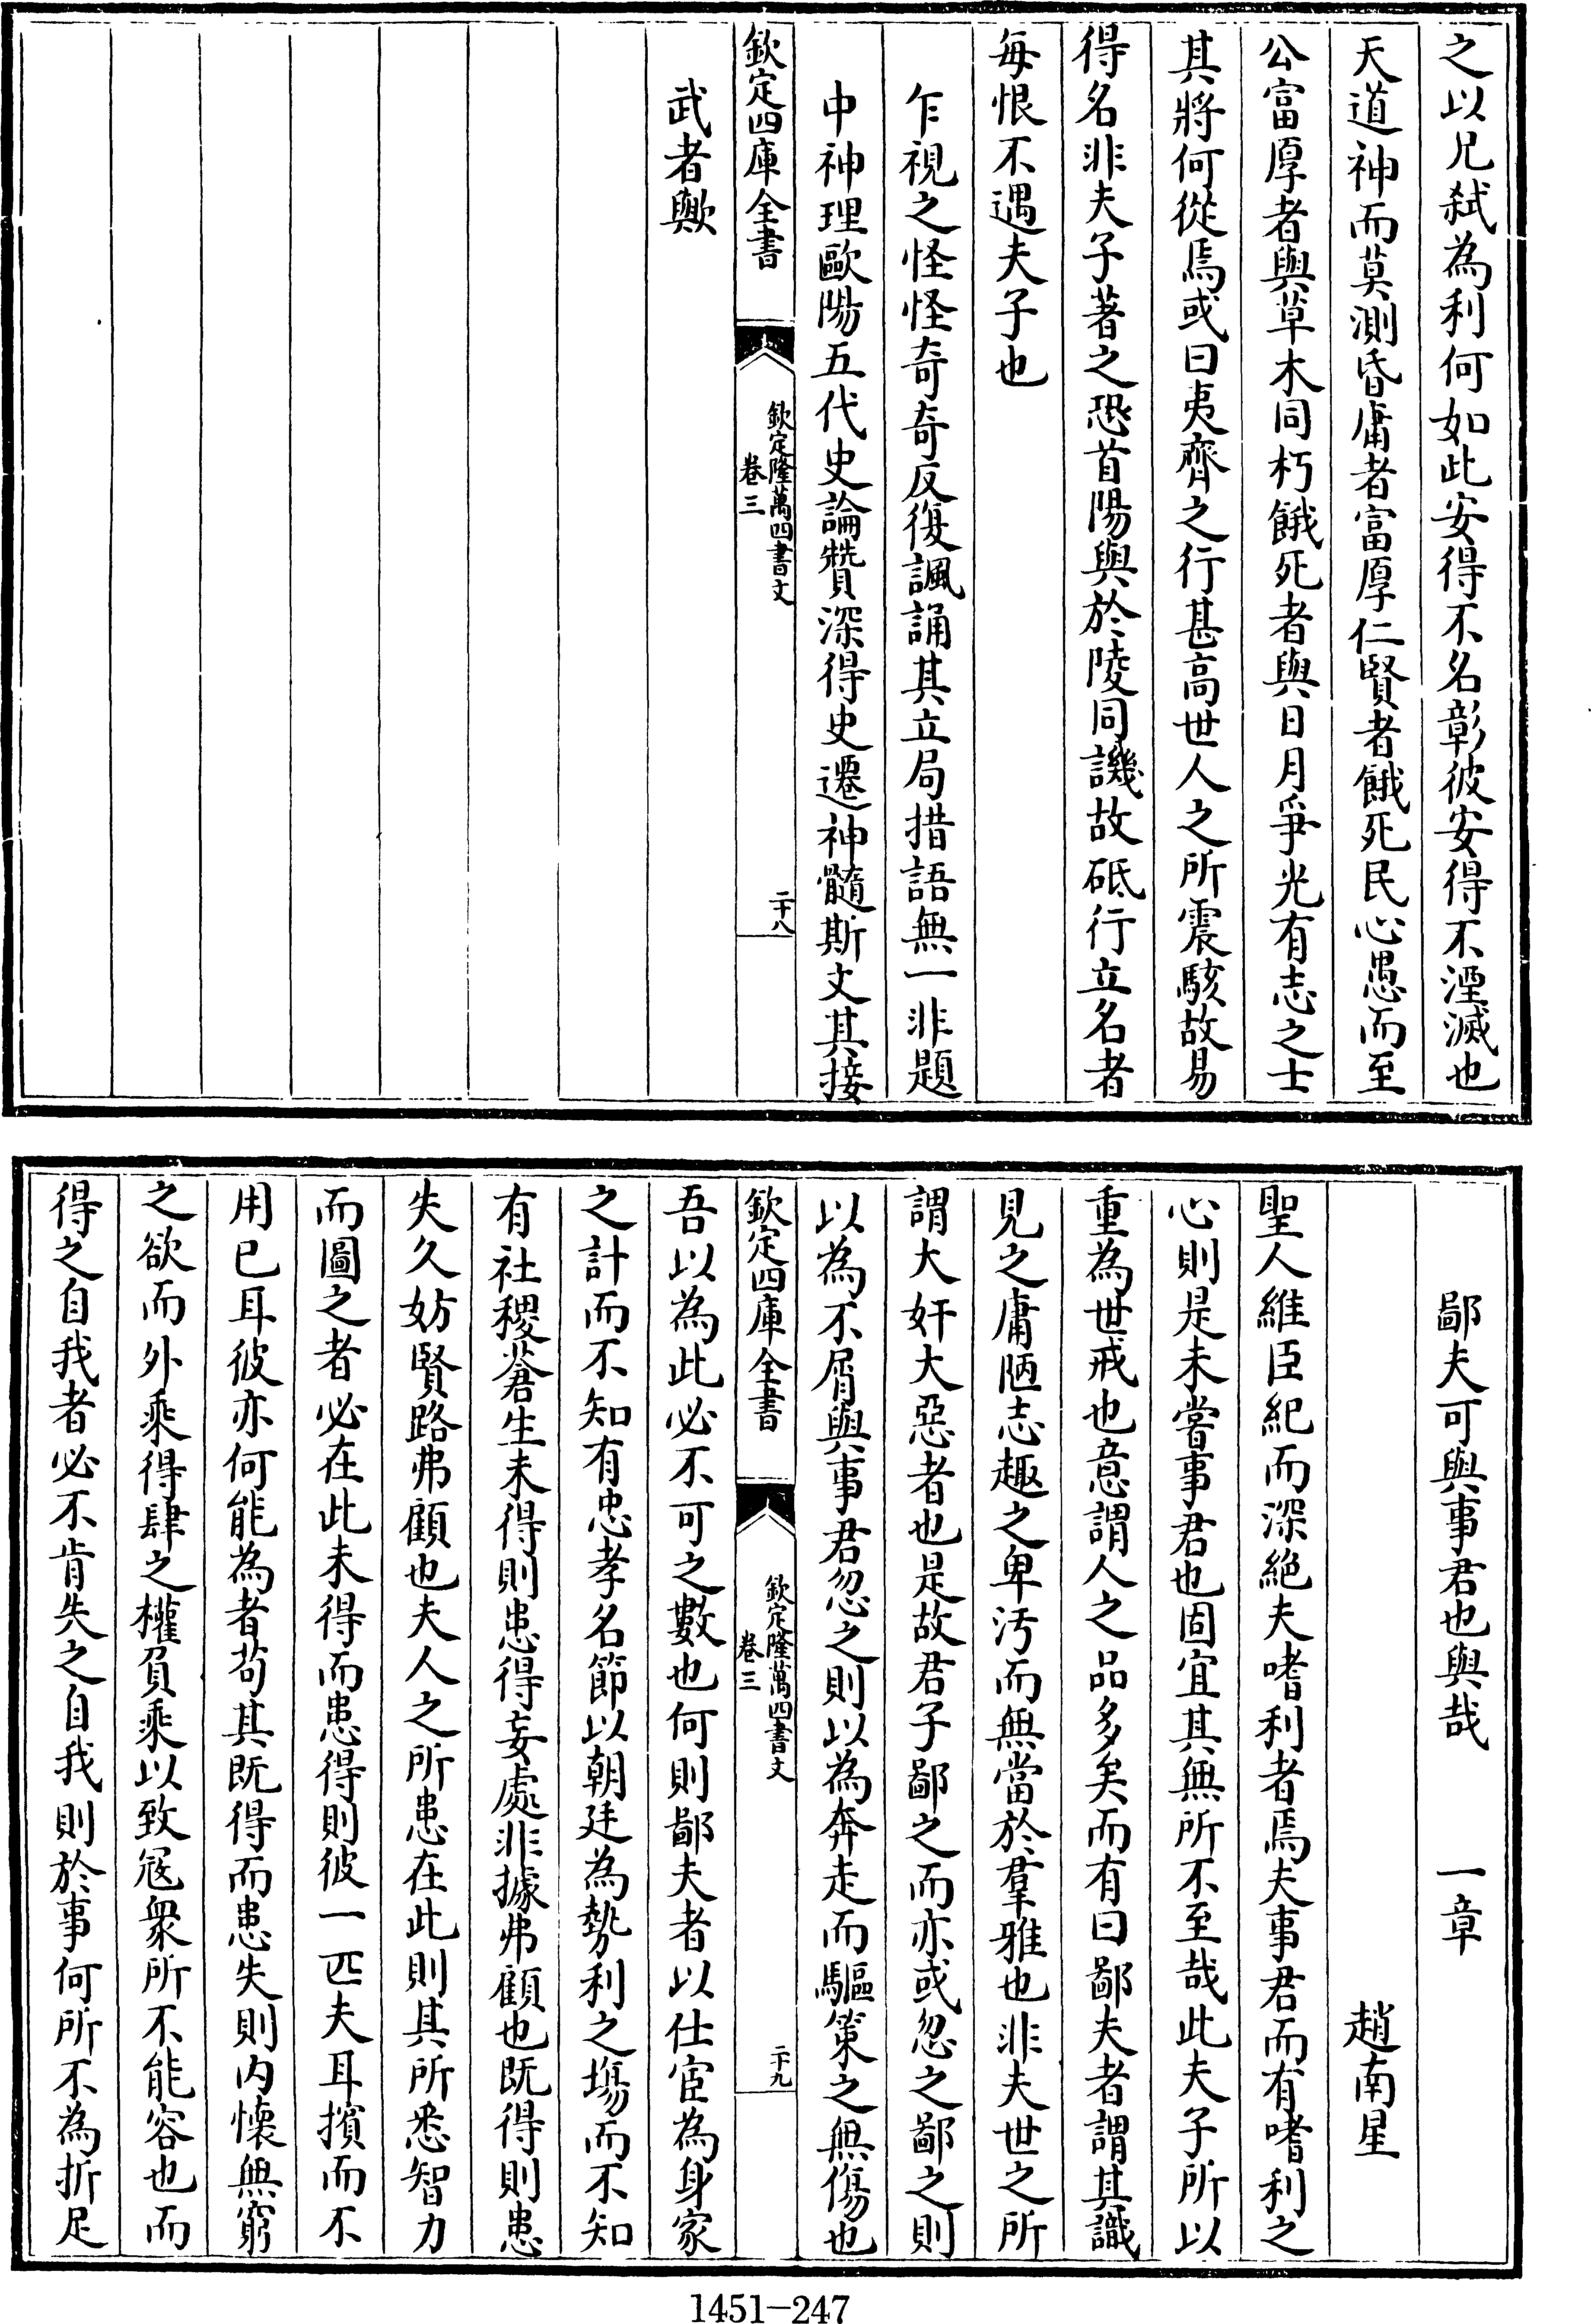 之以兄弑為利何如此安得不名彰彼安得不湮滅也
天道神而莫測昏庸者富厚仁賢者餓死民心愚而至
公富厚者與草木同朽餓死者與日月爭光有志之士
其將何從焉或曰夷齊之行甚高世人之所震駭故易
得名非夫子著之恐首陽與於陵同譏故砥行立名者
每恨不遇夫子也
乍視之怪怪奇奇反復諷誦其立局措語無一非題
中神理歐陽五代史論贊深得史遷神髓斯文其接
欽定四庫全書
欽定隆萬四書文
卷三
二十八
武者歟
鄙夫可與事君也與哉 一章
趙南星
聖人維臣紀而深絕夫嗜利者焉夫事君而有嗜利之
心則是未嘗事君也固宜其無所不至哉此夫子所以
重為世戒也意謂人之品多矣而有曰鄙夫者謂其識
見之庸陋志趣之卑汚而無當於羣雅也非夫世之所
謂大奸大惡者也是故君子鄙之而亦或忽之鄙之則
以為不屑與事君忽之則以為奔走而驅策之無傷也
欽定四庫全書
欽定隆萬四書文
卷三
二十九
吾以為此必不可之數也何則鄙夫者以仕宦為身家
之計而不知有忠孝名節以朝廷為勢利之塲而不知
有社稷蒼生未得則患得妄處非據弗顧也既得則患
失久妨賢路弗顧也夫人之所患在此則其所悉智力
而圖之者必在此未得而患得則彼一匹夫耳擯而不
用已耳彼亦何能為者苟其既得而患失則内懷無窮
之欲而外乘得肆之權負乘以致寇衆所不能容也而
得之自我者必不肯失之自我則於事何所不為折足
1451-247